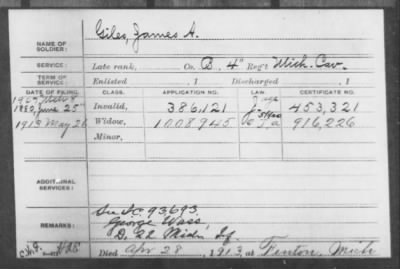 NAME OF SOLDIER: Giles, James A.
SERVICE: Late rank, Co. B, 4" Reg't Mich. Cav.
TERM OF SERVICE: Enlisted , 1 Discharged , 1
DATE OF FILING. CLASS. APPLICATION NO. LAW. CERTIFICATE NO.
1880, June 25" Invalid, 386,121 453,321
1913 May 26 Widow, 1008945 916,226
Minor,
ADDITIONAL SERVICES:
REMARKS: 93,693,
George Wass,
D. 22 Mich. Inf.
Died Apr 28, 1913, at Fenton, Mich